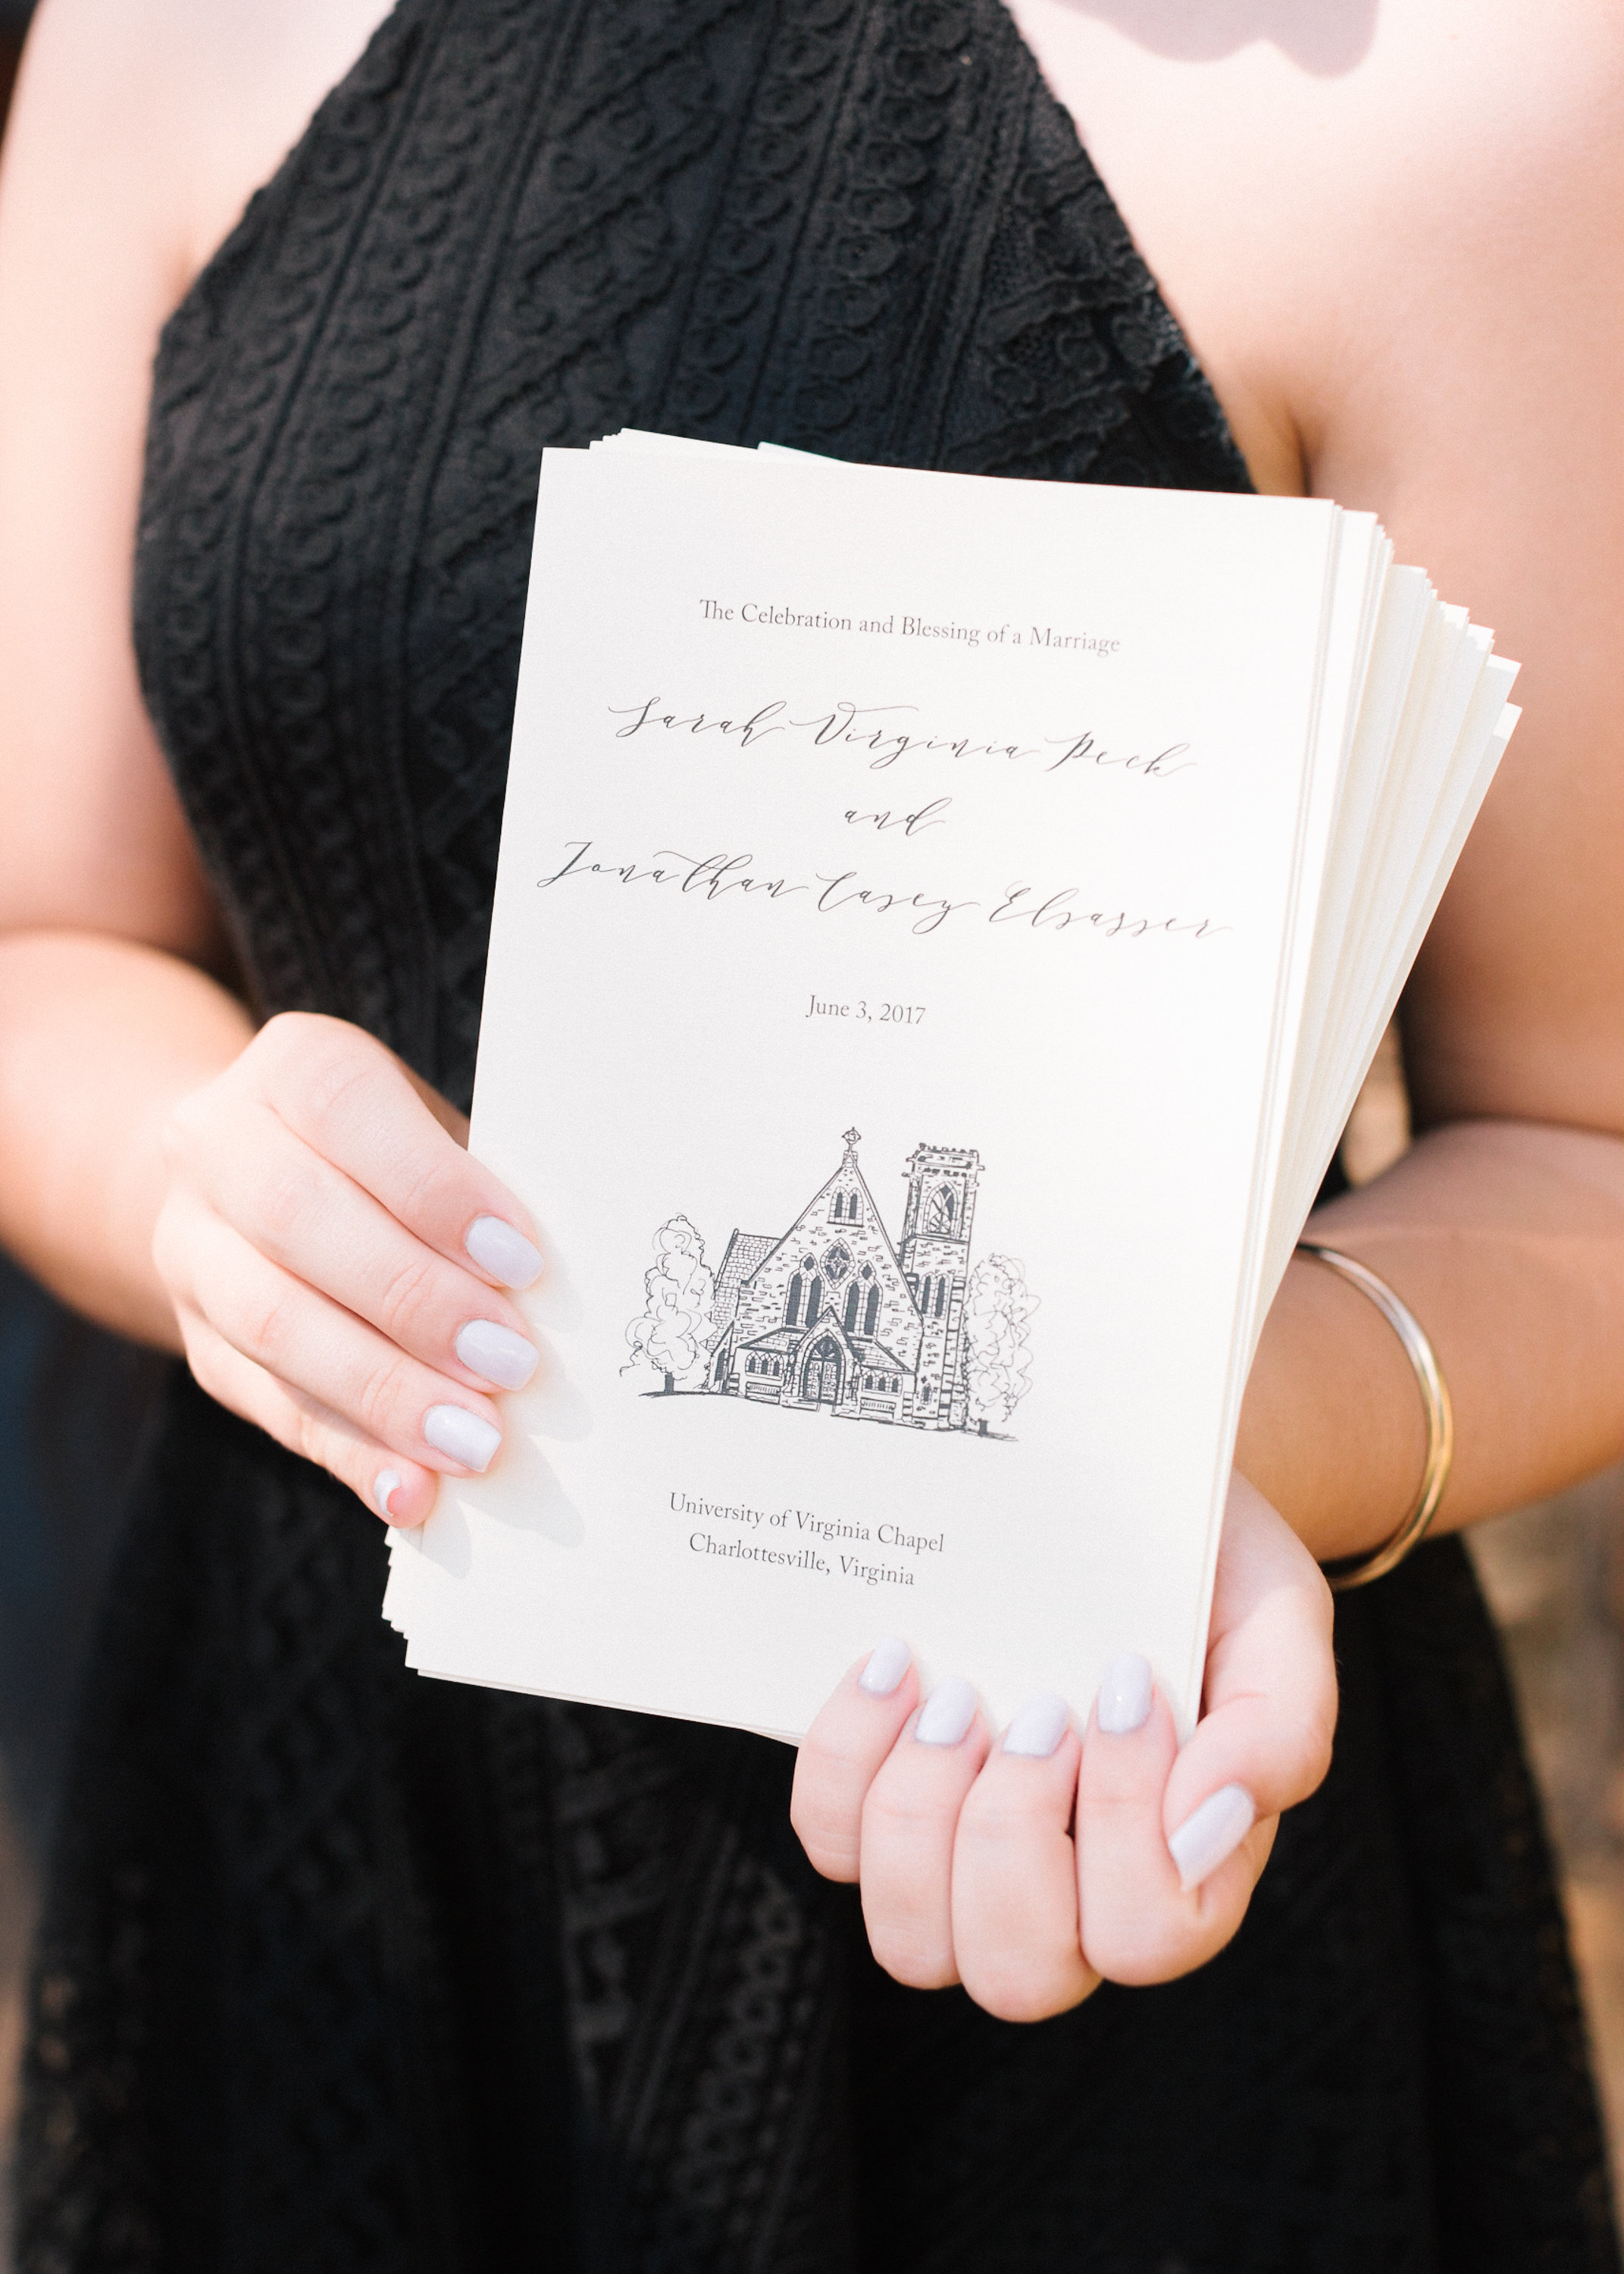 The Celebration and Blessing of a Marriage
Sarah Virginia Peck
and
Jonathan Casey Elsasser
June 3, 2017
University of Virginia Chapel
Charlottesville, Virginia